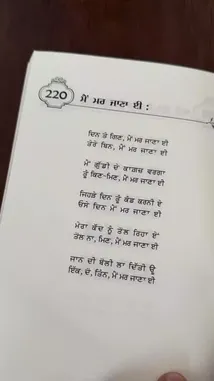 220
ਮੈਂ ਮਰ ਜਾਣਾ ਈ :
ਦਿਨ ਤੇ ਗਿਣ, ਮੈਂ ਮਰ ਜਾਣਾ ਈ
ਤੇਰੇ ਬਿਨ, ਮੈਂ ਮਰ ਜਾਣਾ ਈ
ਮੈਂ ਗੁੱਡੀ ਦੇ ਕਾਗਜ਼ ਵਰਗਾ
ਤੂੰ ਕਿਣ-ਮਿਣ, ਮੈਂ ਮਰ ਜਾਣਾ ਈ
ਜਿਹੜੇ ਦਿਨ ਤੂੰ ਕੰਡ ਕਰਨੀ ਏ
ਓਸੇ ਦਿਨ ਮੈਂ ਮਰ ਜਾਣਾ ਈ
ਮੇਰਾ ਕੱਦ ਨੂੰ ਤੋਲ ਰਿਹਾ ਏਂ
ਤੋਲ ਨਾ, ਮਿਣ, ਮੈਂ ਮਰ ਜਾਣਾ ਈ
ਜਾਨ ਦੀ ਬੋਲੀ ਲਾ ਦਿੱਤੀ ਊ
ਇੱਕ, ਦੋ, ਤਿੰਨ, ਮੈਂ ਮਰ ਜਾਣਾ ਈ